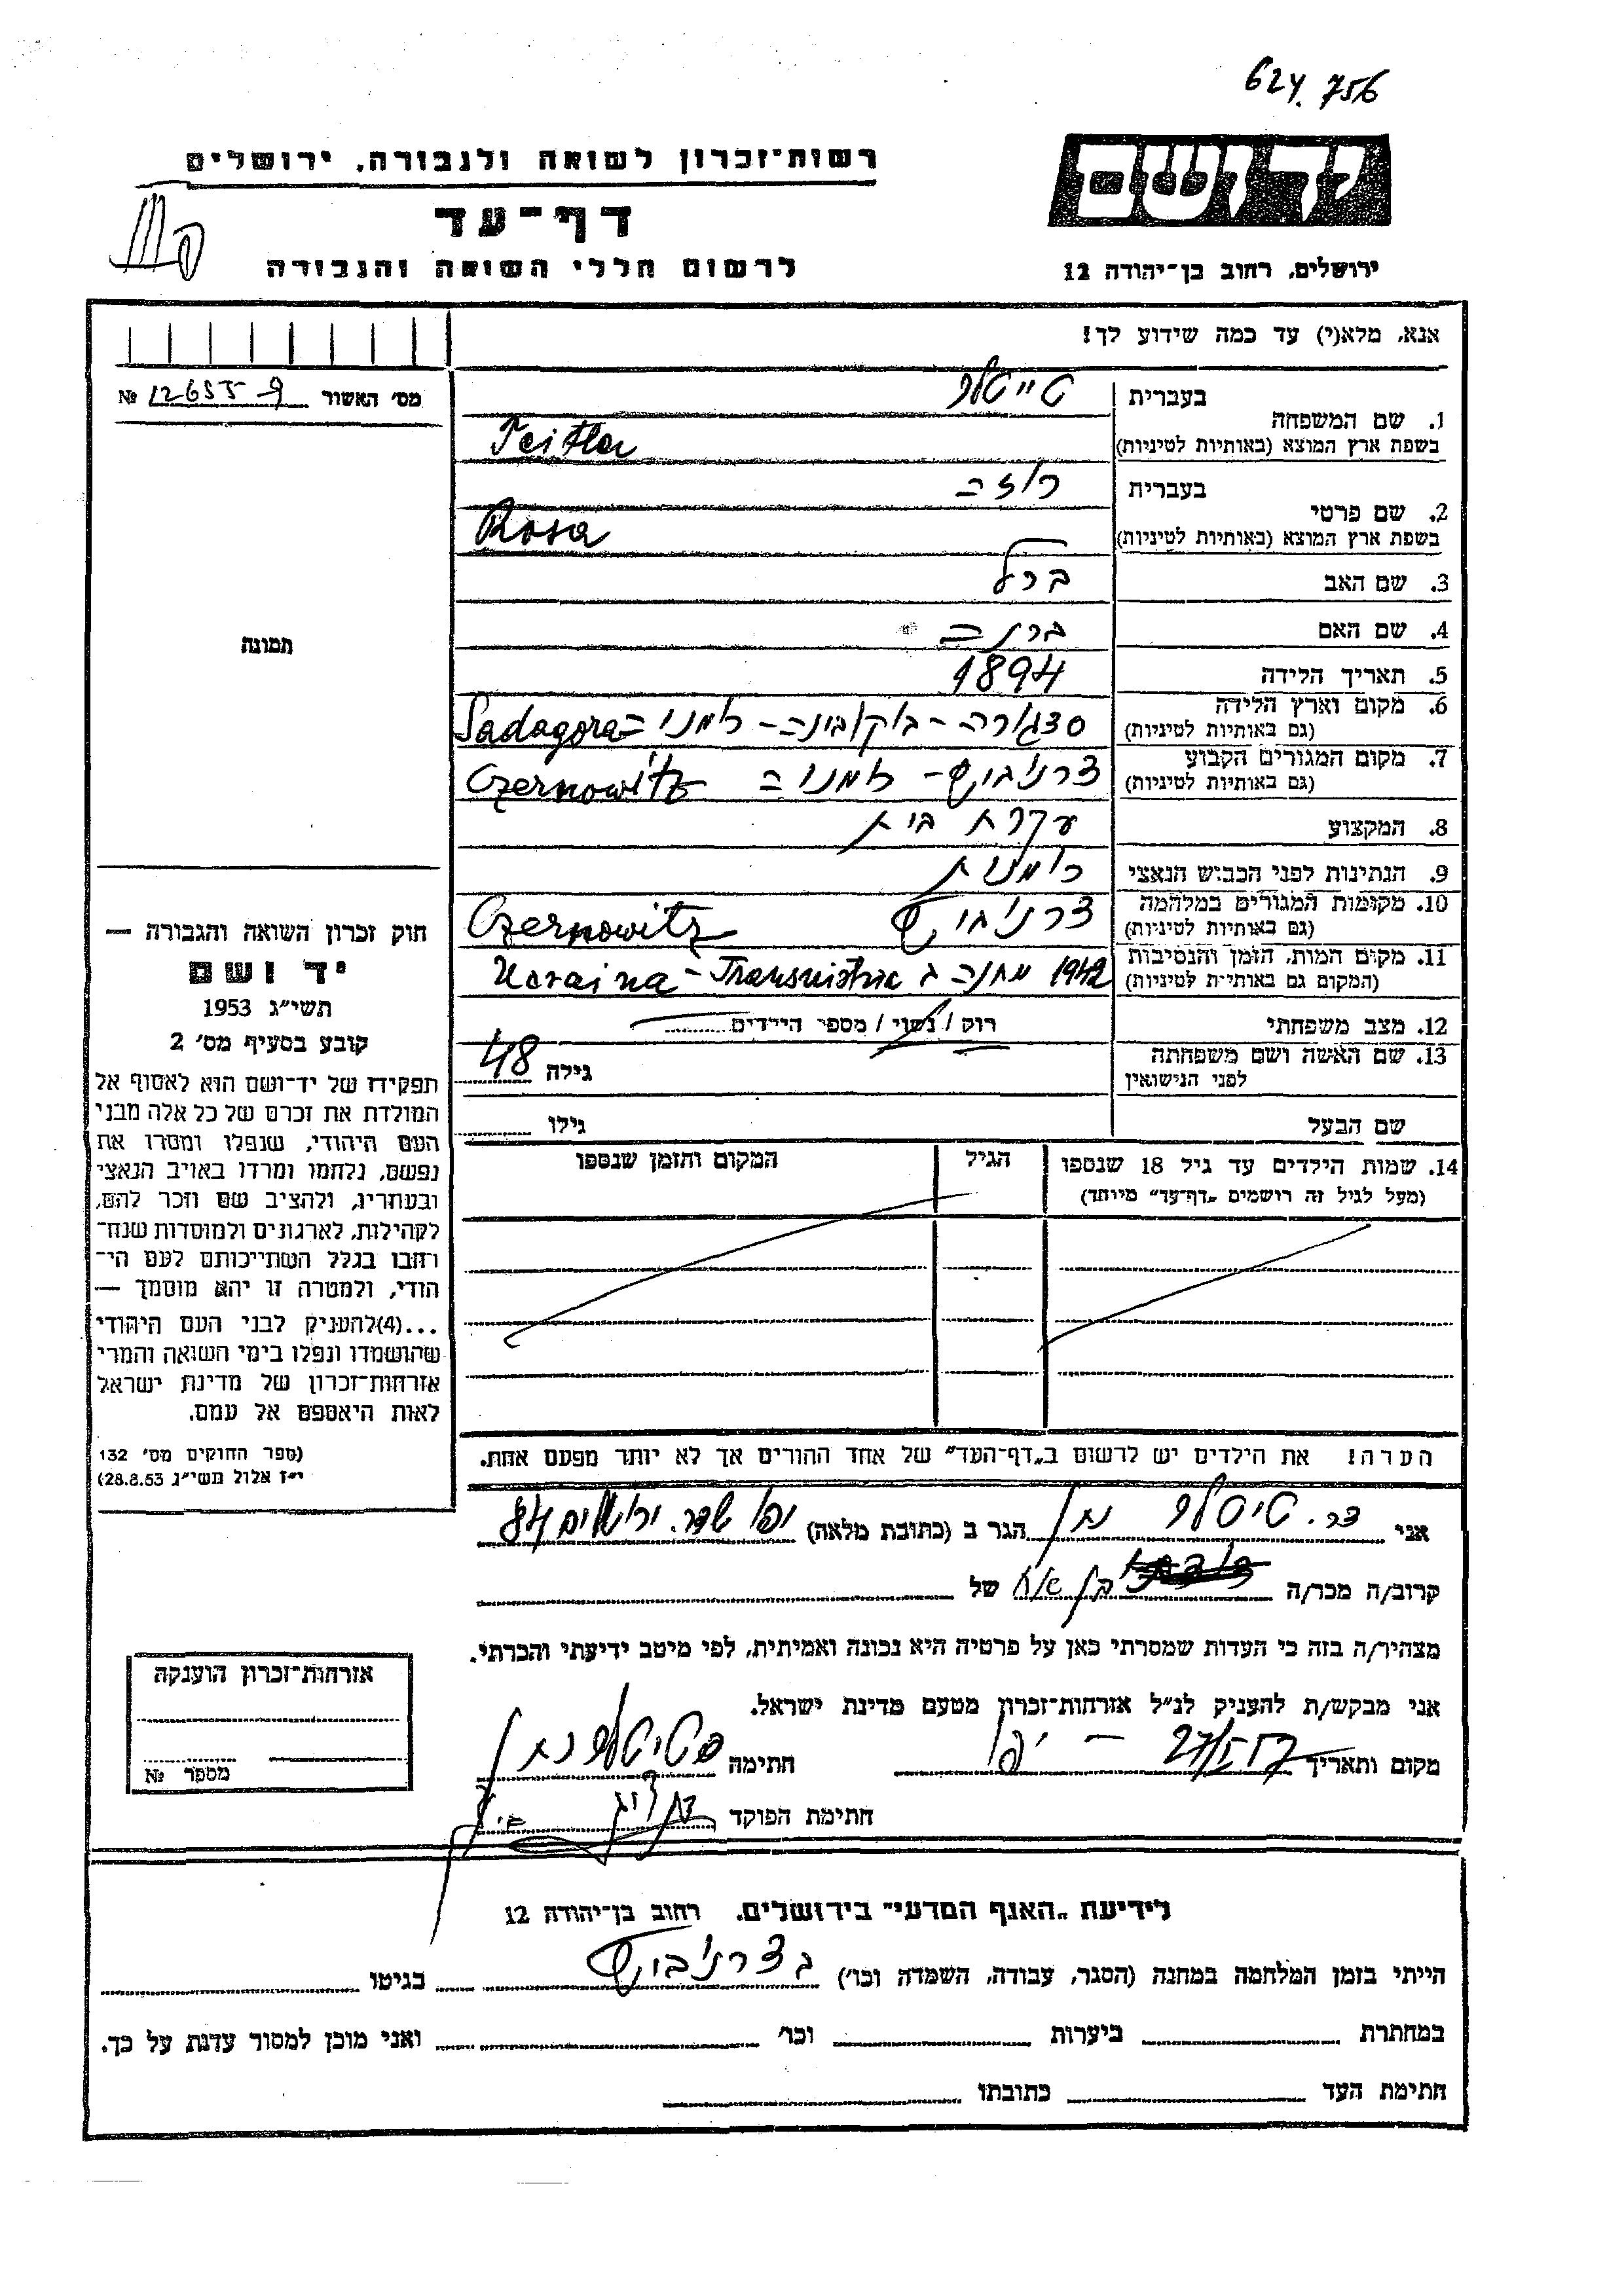 624.756
רשות־זכרון לשואה ולגבורה, ירושלים
יד ושם
דף־עד
לרשום חללי השואה והגבורה
ירושלים, רחוב בן־יהודה 12
אנא, מלא(י) עד כמה שידוע לך!
מס׳ האשור № 12655
1. שם המשפחה
בעברית טייטלר
בשפת ארץ המוצא (באותיות לטיניות) Teitler
2. שם פרטי
בעברית רוזה
בשפת ארץ המוצא (באותיות לטיניות) Rosa
3. שם האב ברל
4. שם האם ברנה
5. תאריך הלידה 1894
6. מקום וארץ הלידה
(גם באותיות לטיניות) סדגורה – בוקובינה – רומניה Sadagora
7. מקום המגורים הקבוע
(גם באותיות לטיניות) צרנוביץ – רומניה Czernowitz
8. המקצוע עקרת בית
9. הנתינות לפני הכבוש הנאצי רומנית
10. מקומות המגורים במלחמה
(גם באותיות לטיניות) צרנוביץ Czernowitz
11. מקום המות, הזמן והנסיבות
(המקום גם באותיות לטיניות) 1942 מחנה ב Ucraina – Transnistria
12. מצב משפחתי רוק / נשוי / מספר הילדים
13. שם האשה ושם משפחתה
לפני הנישואין גילה 48
שם הבעל גילו
14. שמות הילדים עד גיל 18 שנספו
(מעל לגיל זה רושמים „דף־עד” מיוחד)
הגיל
המקום והזמן שנספו
הערה! את הילדים יש לרשום ב„דף־העד” של אחד ההורים אך לא יותר מפעם אחת.
תמונה
חוק זכרון השואה והגבורה —
יד ושם
תשי״ג 1953
קובע בסעיף מס׳ 2
תפקידו של יד־ושם הוא לאסוף אל
המולדת את זכרם של כל אלה מבני
העם היהודי, שנפלו ומסרו את
נפשם, נלחמו ומרדו באויב הנאצי
ובעוזריו, ולהציב שם וזכר להם,
לקהילות, לארגונים ולמוסדות שנח־
רחבו בגלל השתייכותם לעם הי־
הודי, ולמטרה זו יהא מוסמך —
...(4)להעניק לבני העם היהודי
שהושמדו ונפלו בימי השואה והמרי
אזרחות־זכרון של מדינת ישראל
לאות היאספם אל עמם.
(ספר החוקים מס׳ 132
י״ז אלול תשי״ג 28.8.53)
אני דר. טיטלר נתן הגר ב (כתובת מלאה) יפו שדר. ירושלים 84
קרוב/ה מכר/ה בן אח של
מצהיר/ה בזה כי העדות שמסרתי כאן על פרטיה היא נכונה ואמיתית, לפי מיטב ידיעתי והכרתי.
אני מבקש/ת להעניק לנ״ל אזרחות־זכרון מטעם מדינת ישראל.
מקום ותאריך 27/5 57 – יפו חתימה טיטלר נתן
חתימת הפוקד
אזרחות־זכרון הוענקה
מספר №
לידיעת „האגף המדעי” בירושלים. רחוב בן־יהודה 12
הייתי בזמן המלחמה במחנה (הסגר, עבודה, השמדה וכו׳) בצרנוביץ בגיטו
במחתרת ביערות וכו׳ ואני מוכן למסור עדות על כך.
חתימת העד כתובתו